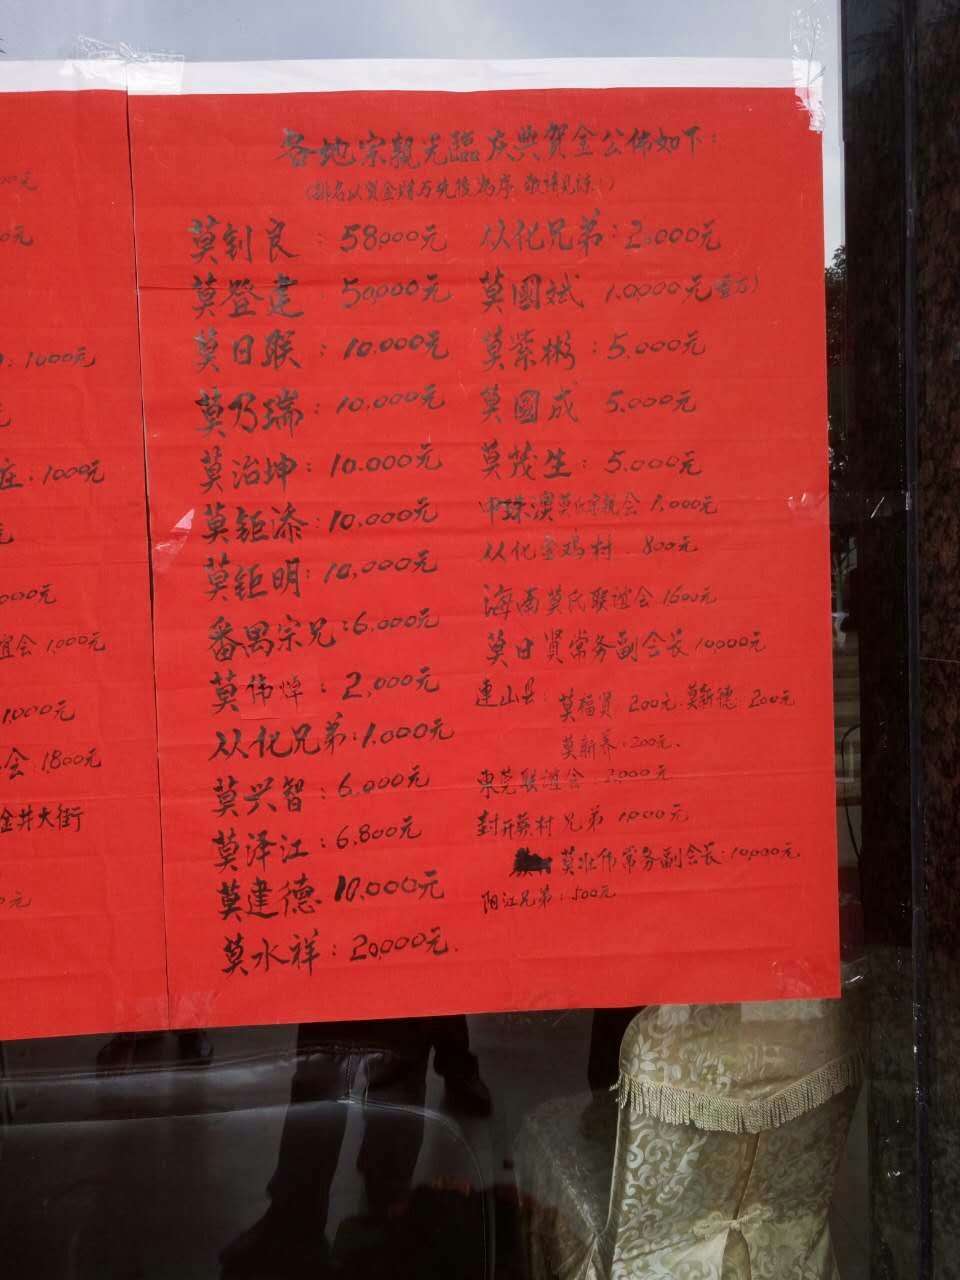 各地宗親光臨庆典賀金公佈如下：
莫钊良：58000元
莫登建 50,000元
莫日联：10.000元
莫乃瑞：10.000元
莫治坤：10.000元
莫钜添：10,000元
莫钜明：10,000元
番禺宗兄：6,000元
莫伟焯：2,000元
从化兄弟：1.000元
莫兴智：6,000元
莫泽江：6,800元
莫建德 10,000元
莫水祥：20,000元.
从化兄弟：2,000元
莫國斌 10,000元
莫紫彬：5.000元
莫國成 5,000元
莫茂生：5.000元
中珠澳莫氏宗親会 1,000元
从化 鸡村 . 800元
海南莫氏联谊会 1600元
莫日贤常务副会长 10000元
連山县：莫福贤 200元. 莫新德 200元
莫新养：200元.
東莞联谊会 2,000元
封开莫村兄弟 1,000元
莫壮伟常务副会长 10,000元
阳江兄弟：500元
1000元
庄：1000元
000元
谊会 1,000元
1,000元
会：1,800元
金井大街